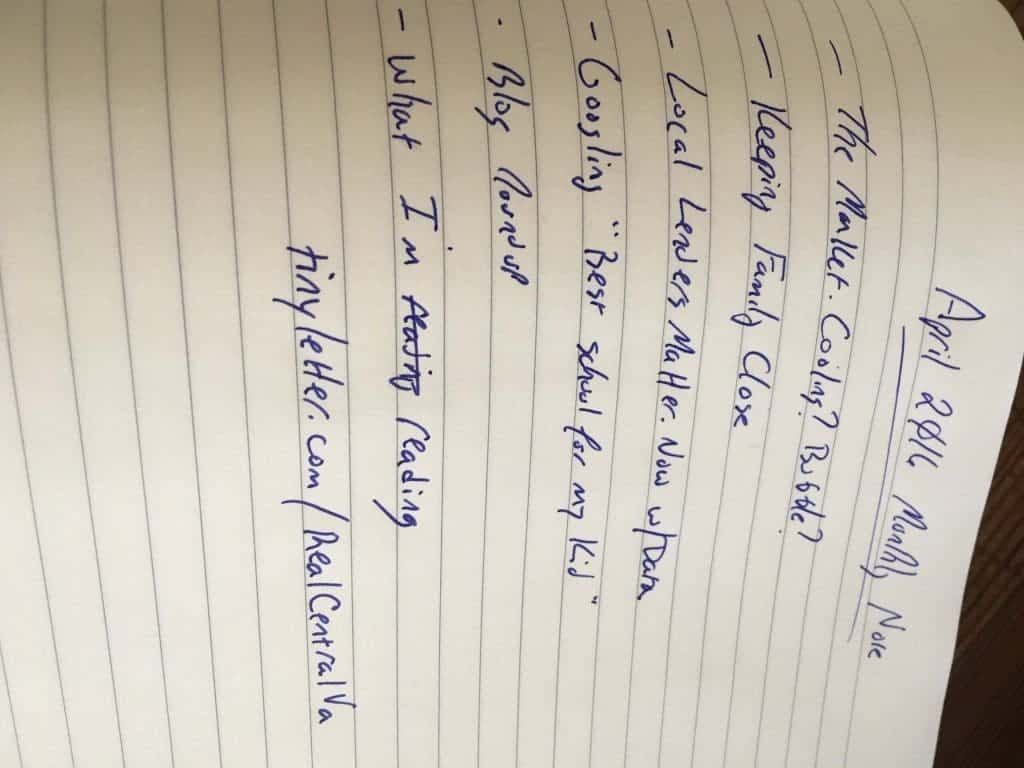 April 2016 Monthly Note
- The Market. Cooling? Bubble?
- Keeping Family Close
- Local Lenders Matter. Now w/Data
- Googling "Best school for my kid"
- Blog Round up
- What I'm reading
tinyletter.com/RealCentralVa